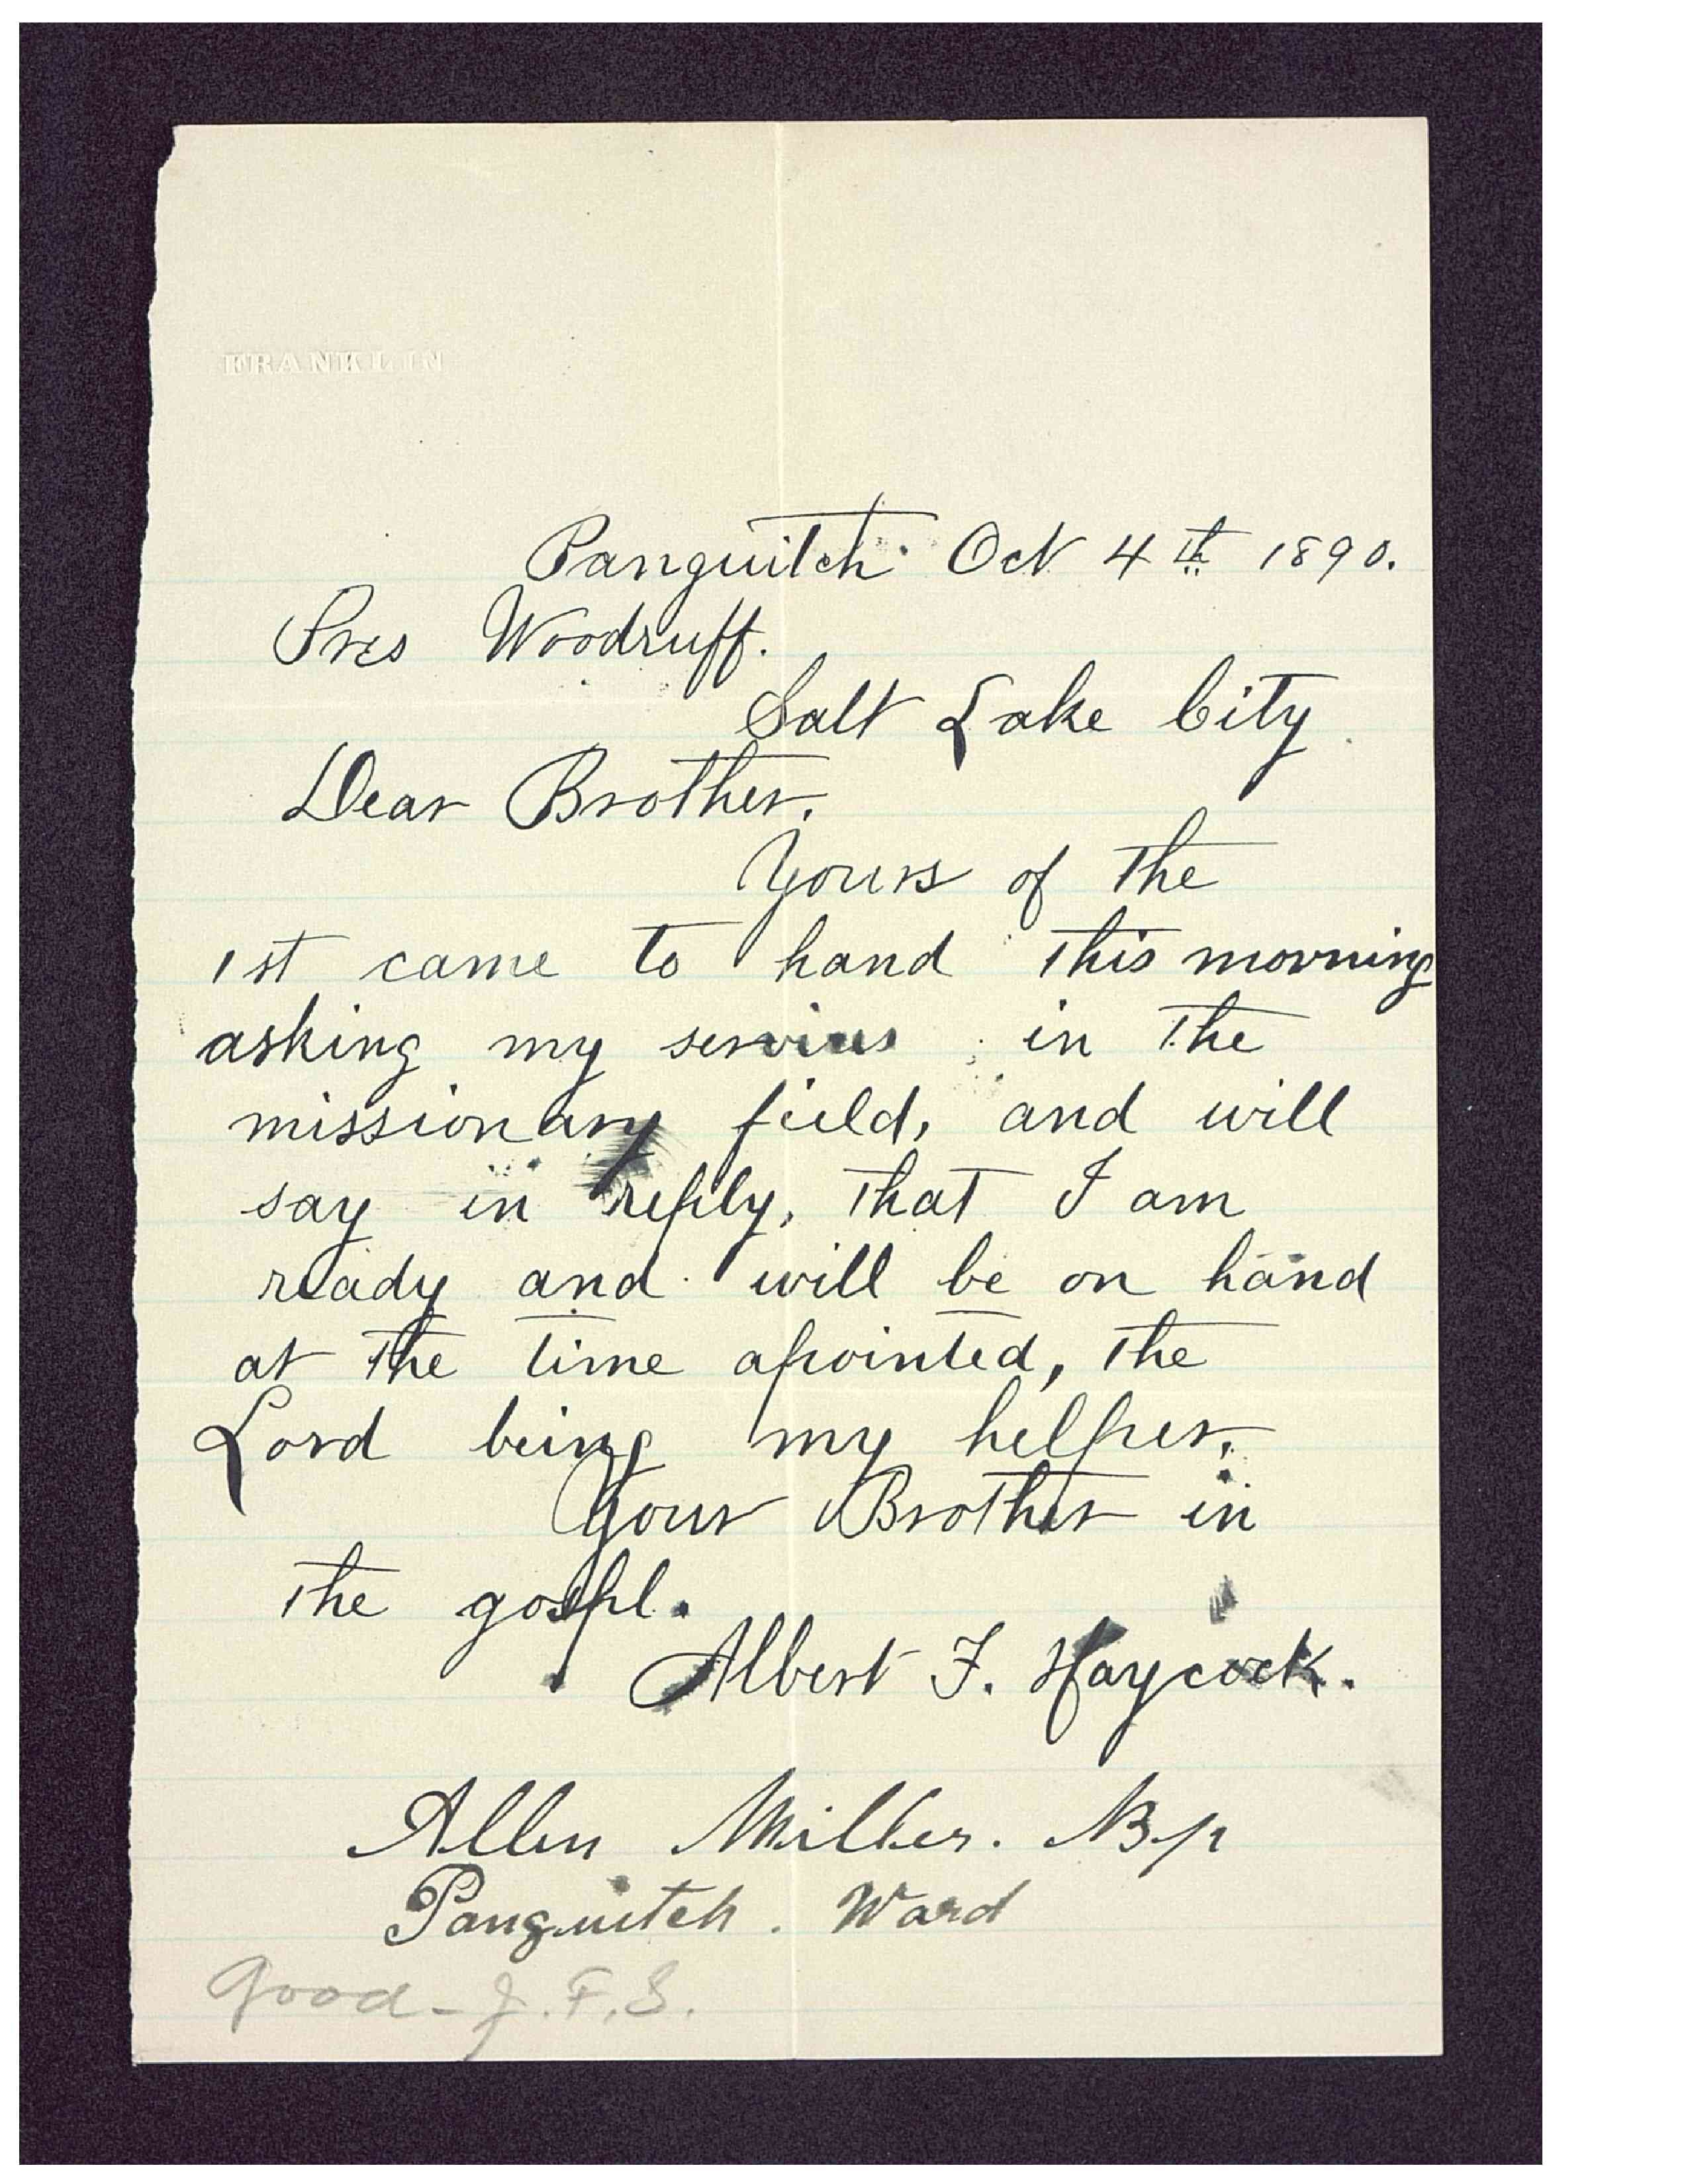 FRANKLIN
Panguitch Oct 4th 1890.
Pres Woodruff.
Salt Lake City
Dear Brother.
Yours of the
1st came to hand this morning
asking my servises in the
missionary field, and will
say in reply, that I am
ready and will be on hand
at the time apointed, the
Lord being my helper.
Your Brother in
the gospel.
Albert F. Haycock.
Allen Miller. Bp
Panguitch. Ward
Good - J. F. S.